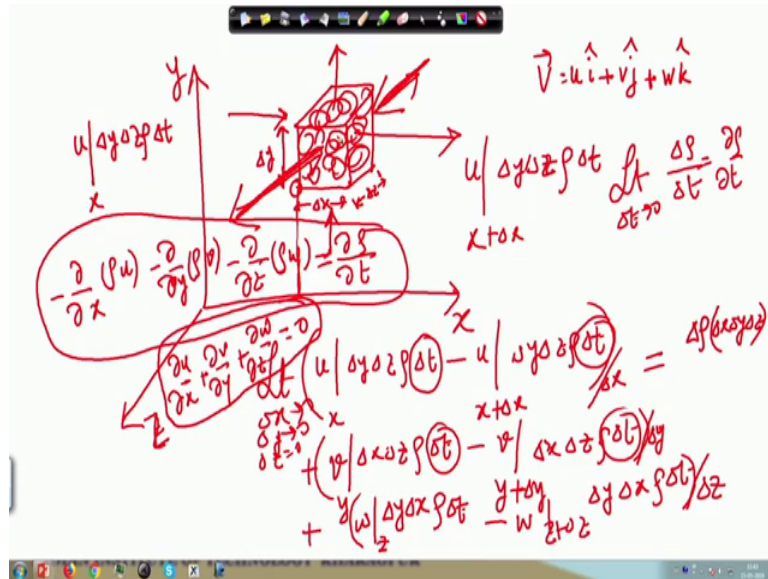 y
V⃗ = uî + vĵ + wk̂
u|ₓ Δy Δz ρ Δt
Δy
Δx
Δz
u|ₓ₊Δₓ Δy Δz ρ Δt
Lt Δt→0 Δρ/Δt = ∂ρ/∂t
-∂/∂x (ρu) - ∂/∂y (ρv) - ∂/∂z (ρw) = ∂ρ/∂t
x
z
∂u/∂x + ∂v/∂y + ∂w/∂z = 0
Lt Δx→0 Δy→0 Δz→0 (u|ₓ Δy Δz ρ Δt - u|ₓ₊Δₓ Δy Δz ρ Δt)/Δx = Δρ(Δx Δy Δz)
+ (v|y Δx Δz ρ Δt - v|y+Δy Δx Δz ρ Δt)/Δy
+ (w|z Δy Δx ρ Δt - w|z+Δz Δy Δx ρ Δt)/Δz